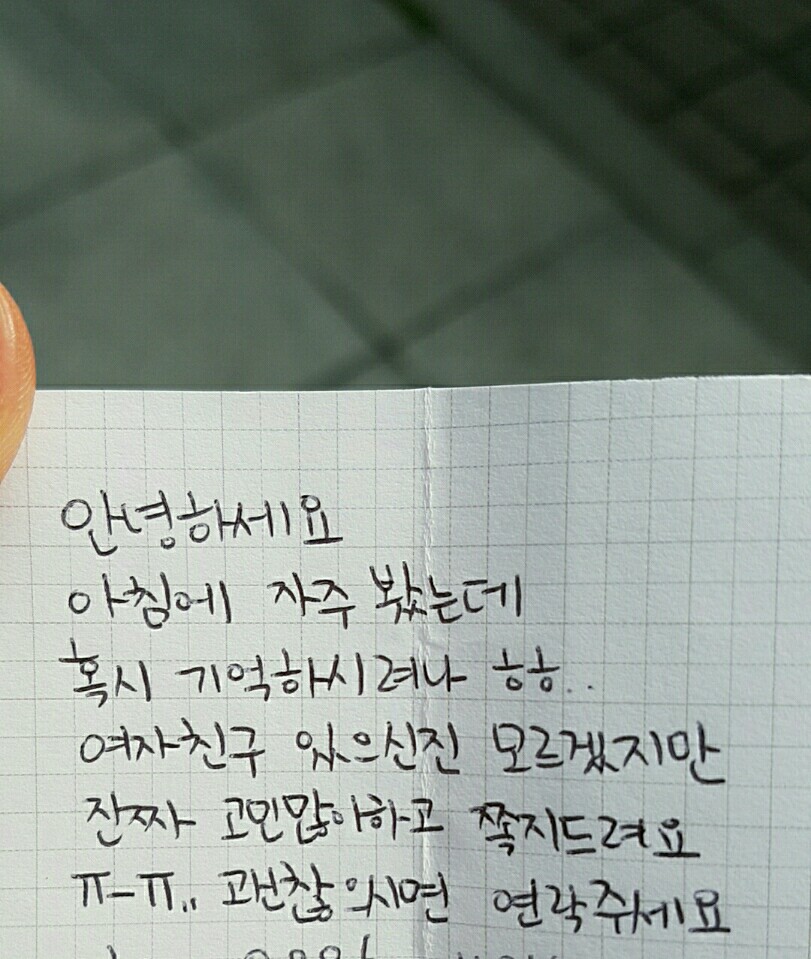 안녕하세요
아침에 자주 봤는데
혹시 기억하시려나 ㅎㅎ..
여자친구 있으신진 모르겠지만
진짜 고민많이하고 쪽지드려요
ㅠ-ㅠ.. 괜찮으시면 연락주세요